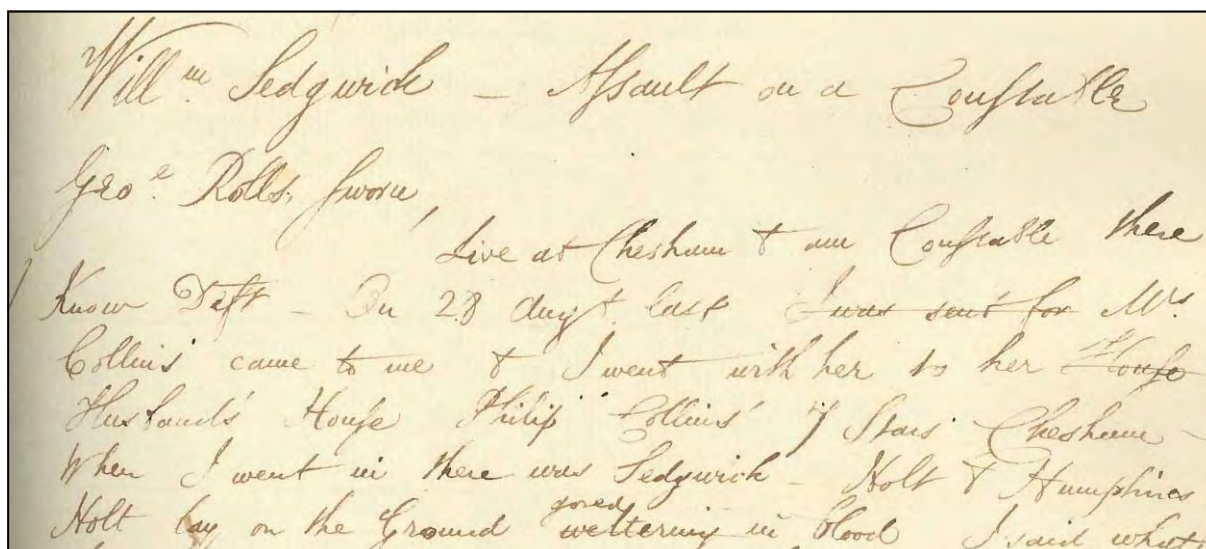 Will.m Sedgwick - Assault on a Constable
Geo.e Rolls, sworn,
Live at Chesham & am Constable there
Know Deft - On 28 Augt. last I was sent for Mrs
Collins came to me & I went with her to her House
Husband's House Philip Collins' 7 Stars Chesham -
When I went in there was Sedgwick - Holt & Humphries
Holt lay on the Ground weltering in blood I said what